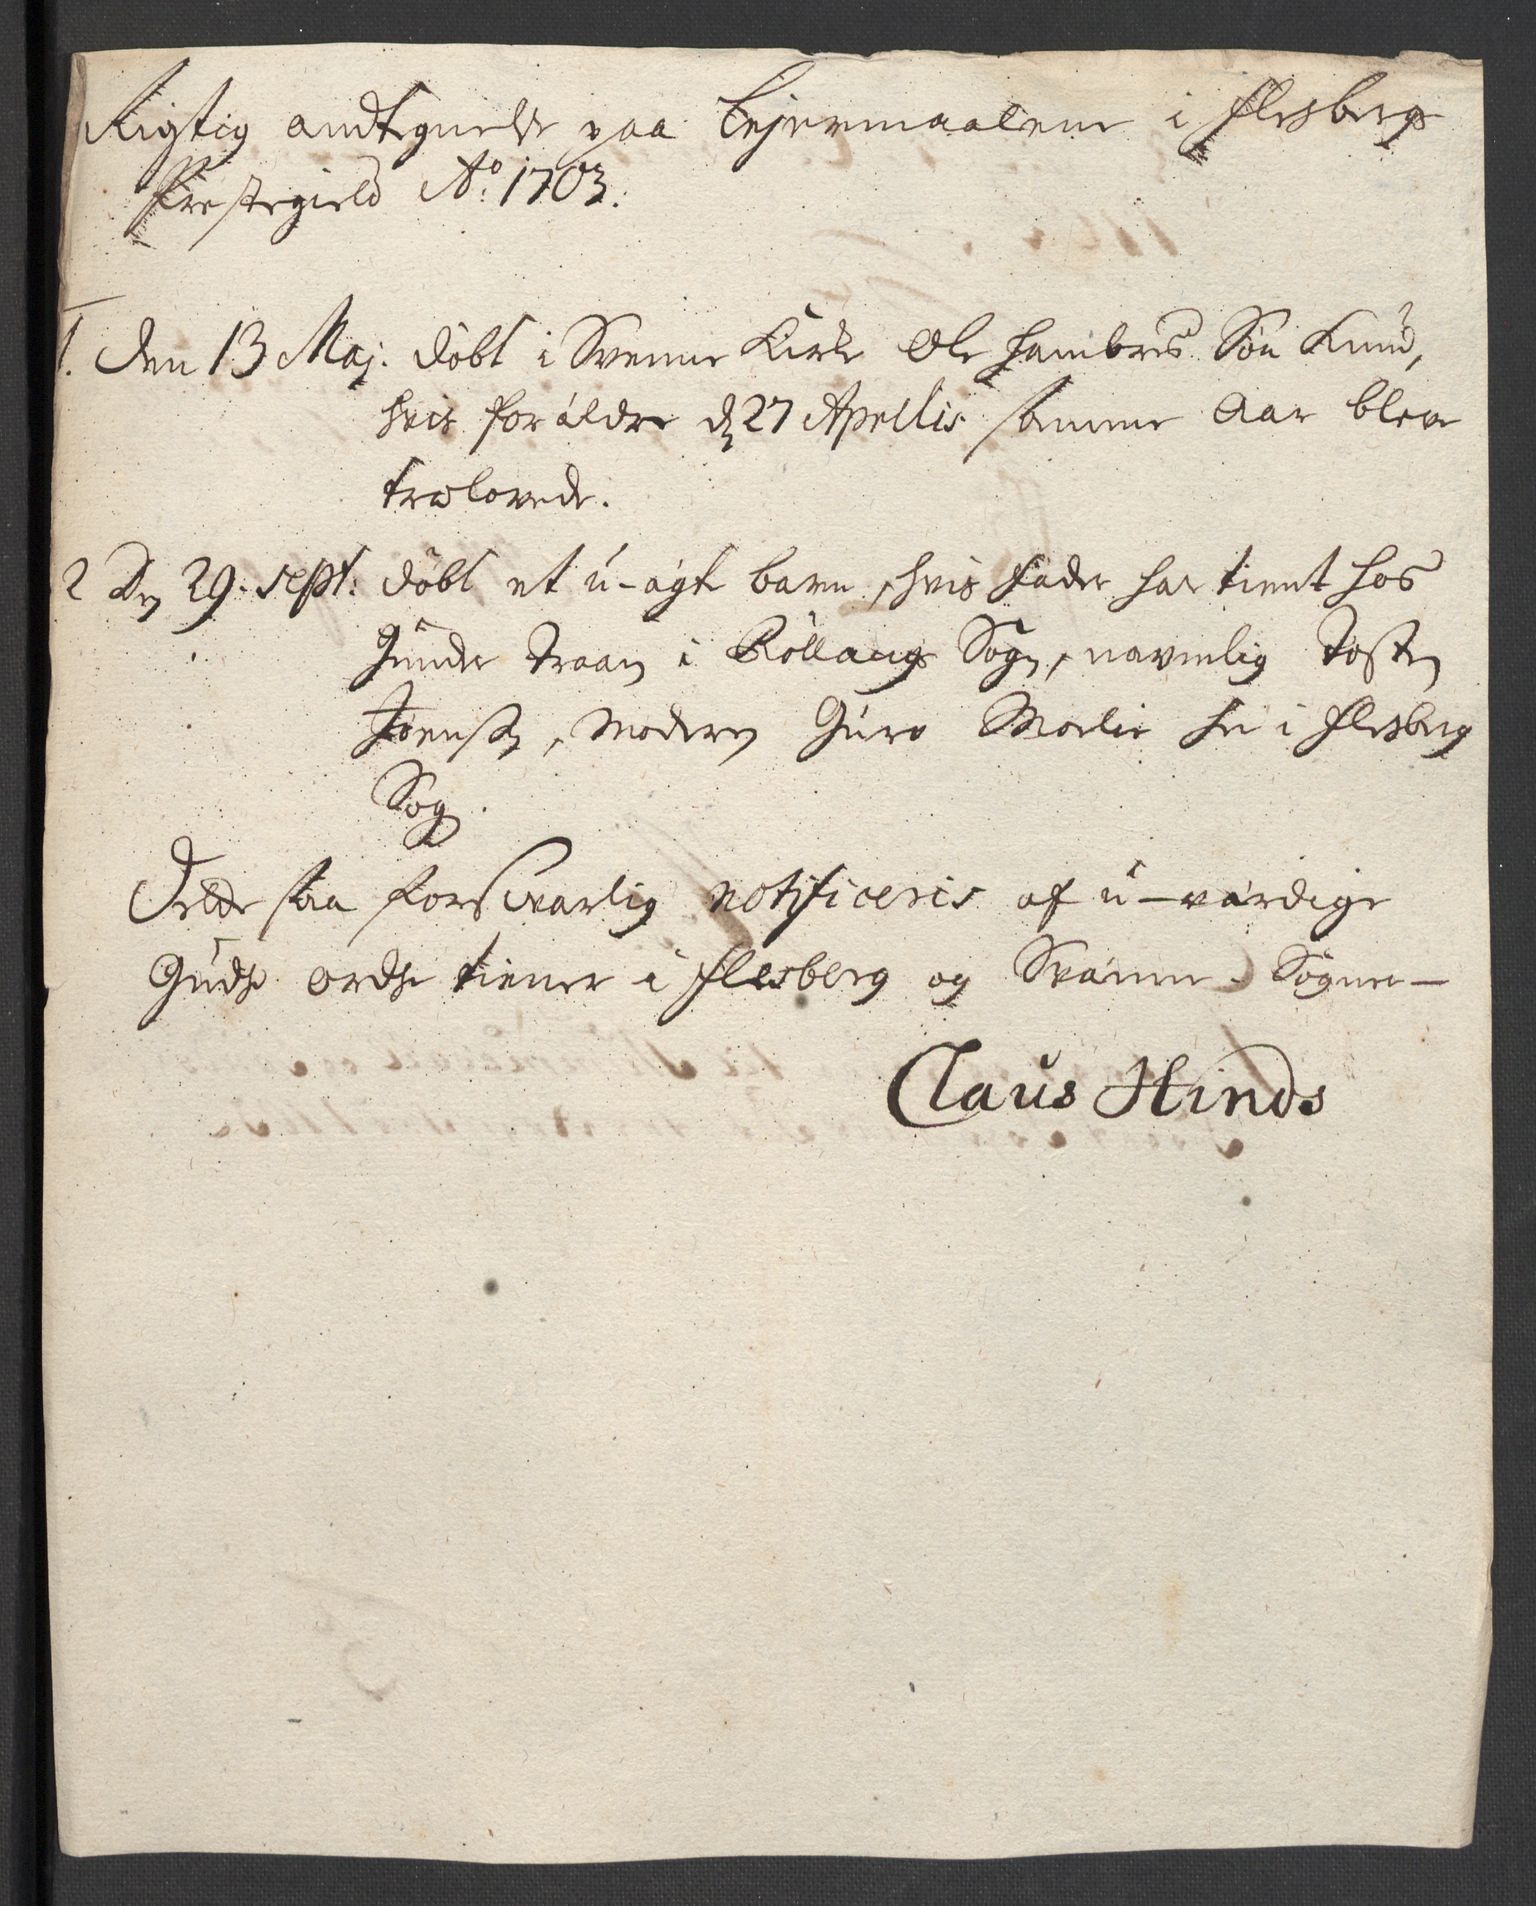 Rigtig andtegnelse paa Lejermaalene i Flesberg
Præstegield Ao: 1703.
1. Den 13 Maj. döbt i Svenne Kirke Ole Hambres Sön Knud,
hvis forældre d 27 Aprilis samme Aar bleve
trolovede.
2 Den 29. Sept: döbt et u-ægte barn, hvis Fader har tient hos
Gunder Traaen i Rollaugs Sogn, navnlig Tosten
Joensen, Moderen Guro Moelie här i Flesberg
Sogn.
Dette saa forsvarlig notificeris af u-værdige
Guds ords tiener i Flesberg og Svenne Sogner-
Claus Hinds